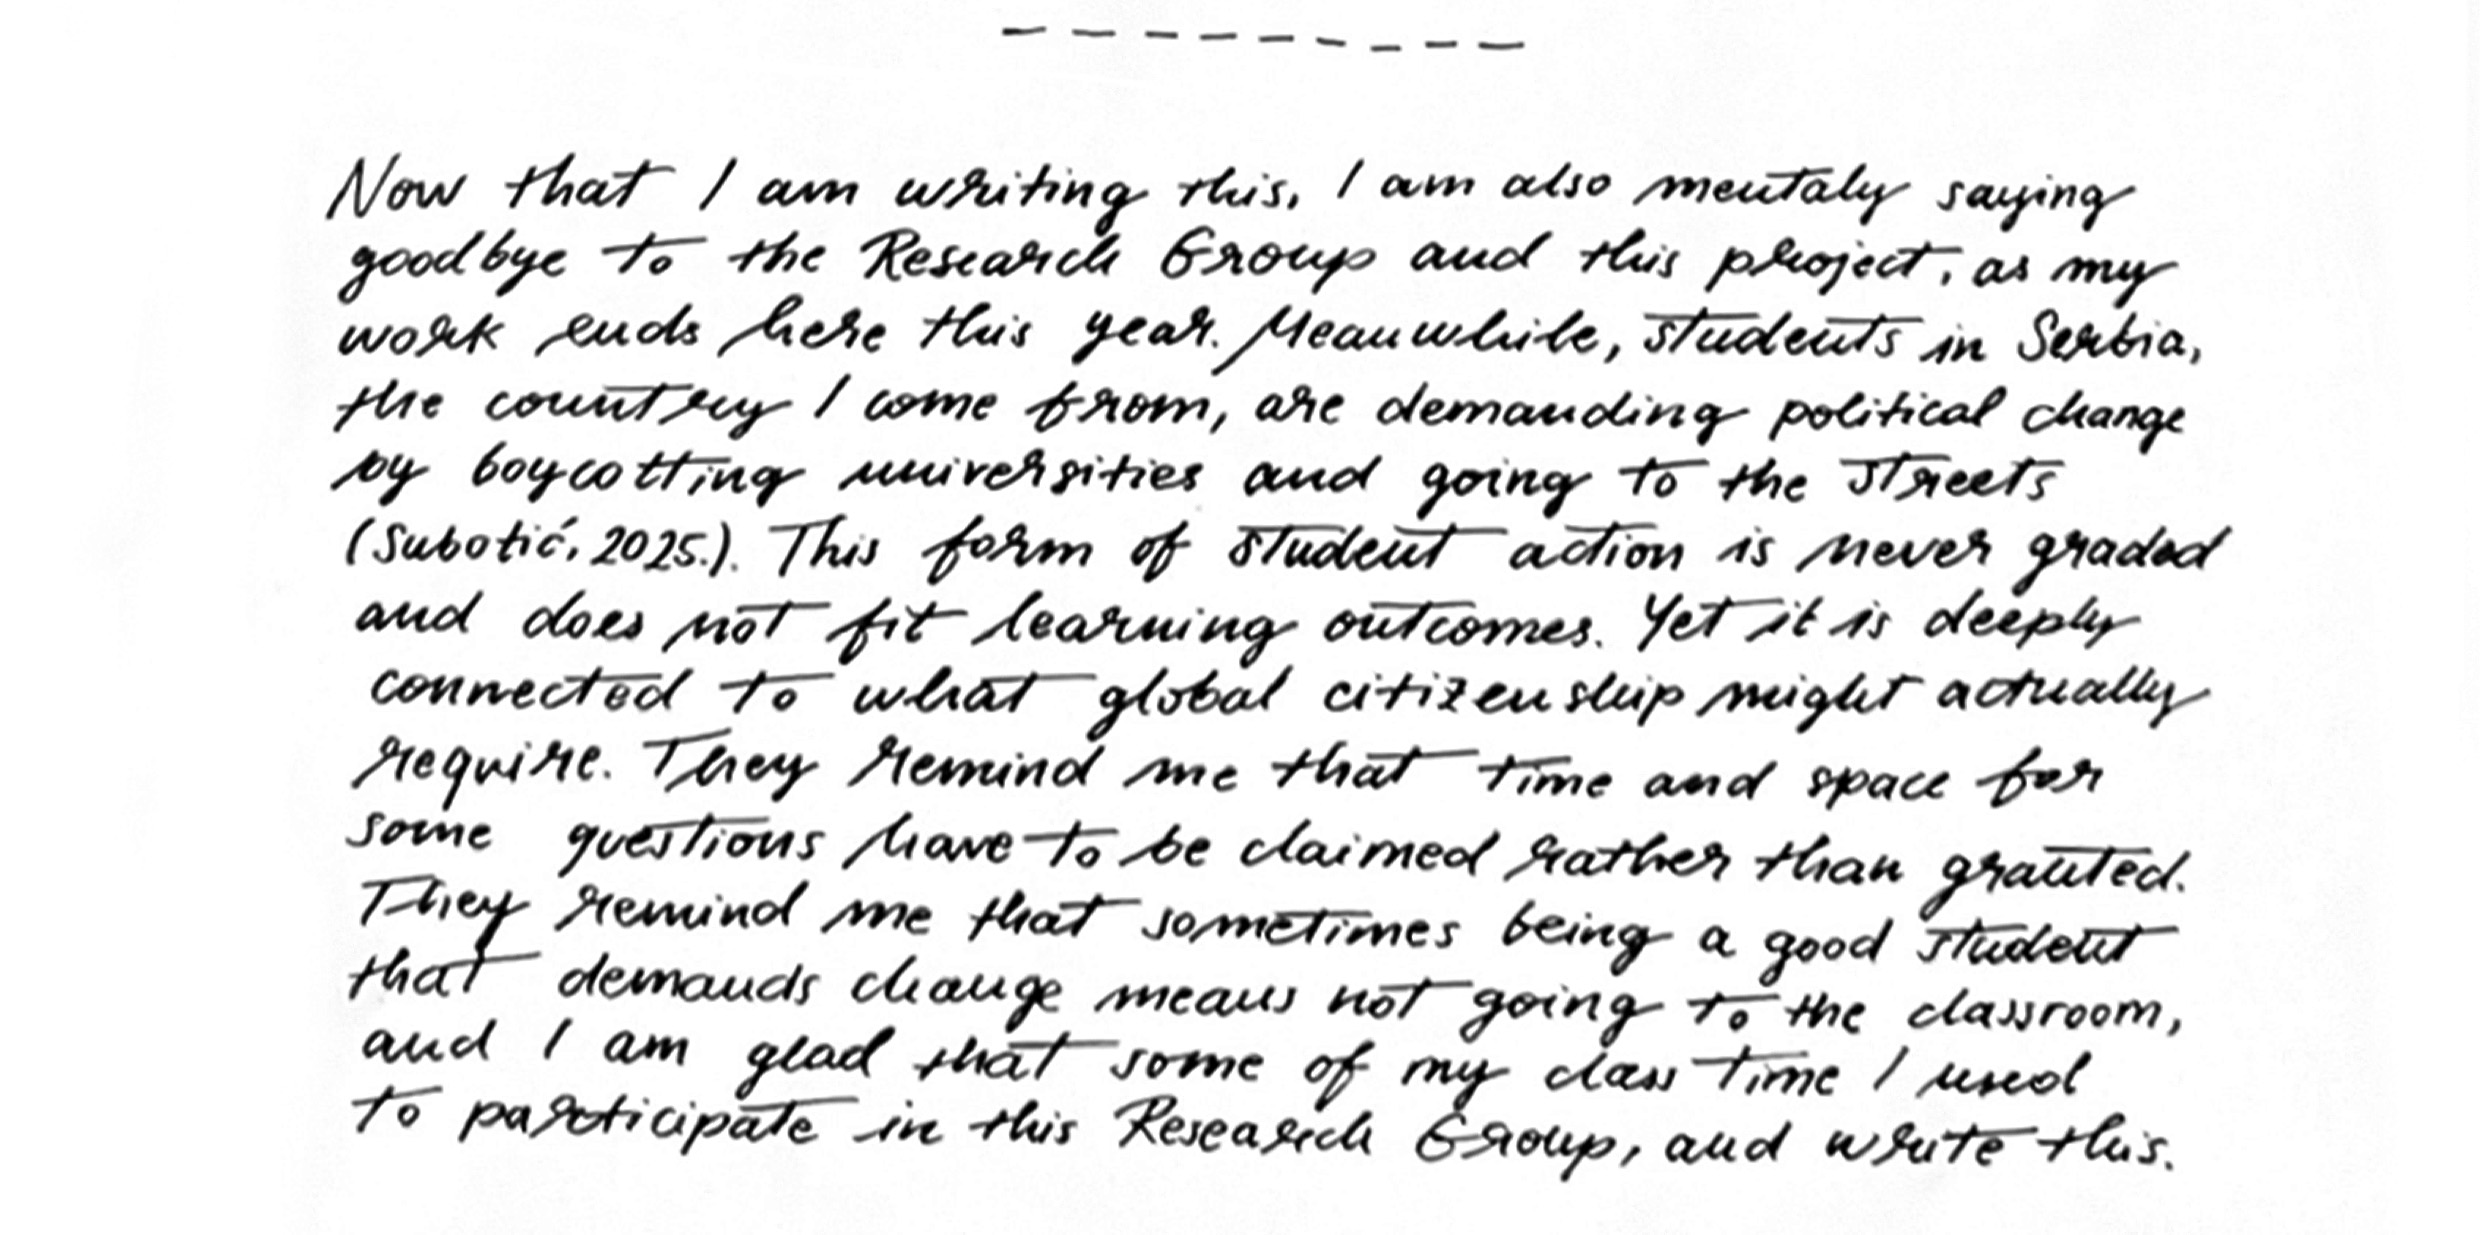 Now that I am writing this, I am also mentaly saying
goodbye to the Research Group and this project, as my
work ends here this year. Meanwhile, students in Serbia,
the country I come from, are demanding political change
by boycotting universities and going to the streets
(Subotić, 2025.). This form of student action is never graded
and does not fit learning outcomes. Yet it is deeply
connected to what global citizenship might actually
require. They remind me that time and space for
some questions have to be claimed rather than granted.
They remind me that sometimes being a good student
that demands change means not going to the classroom,
and I am glad that some of my class time I used
to participate in this Research Group, and write this.